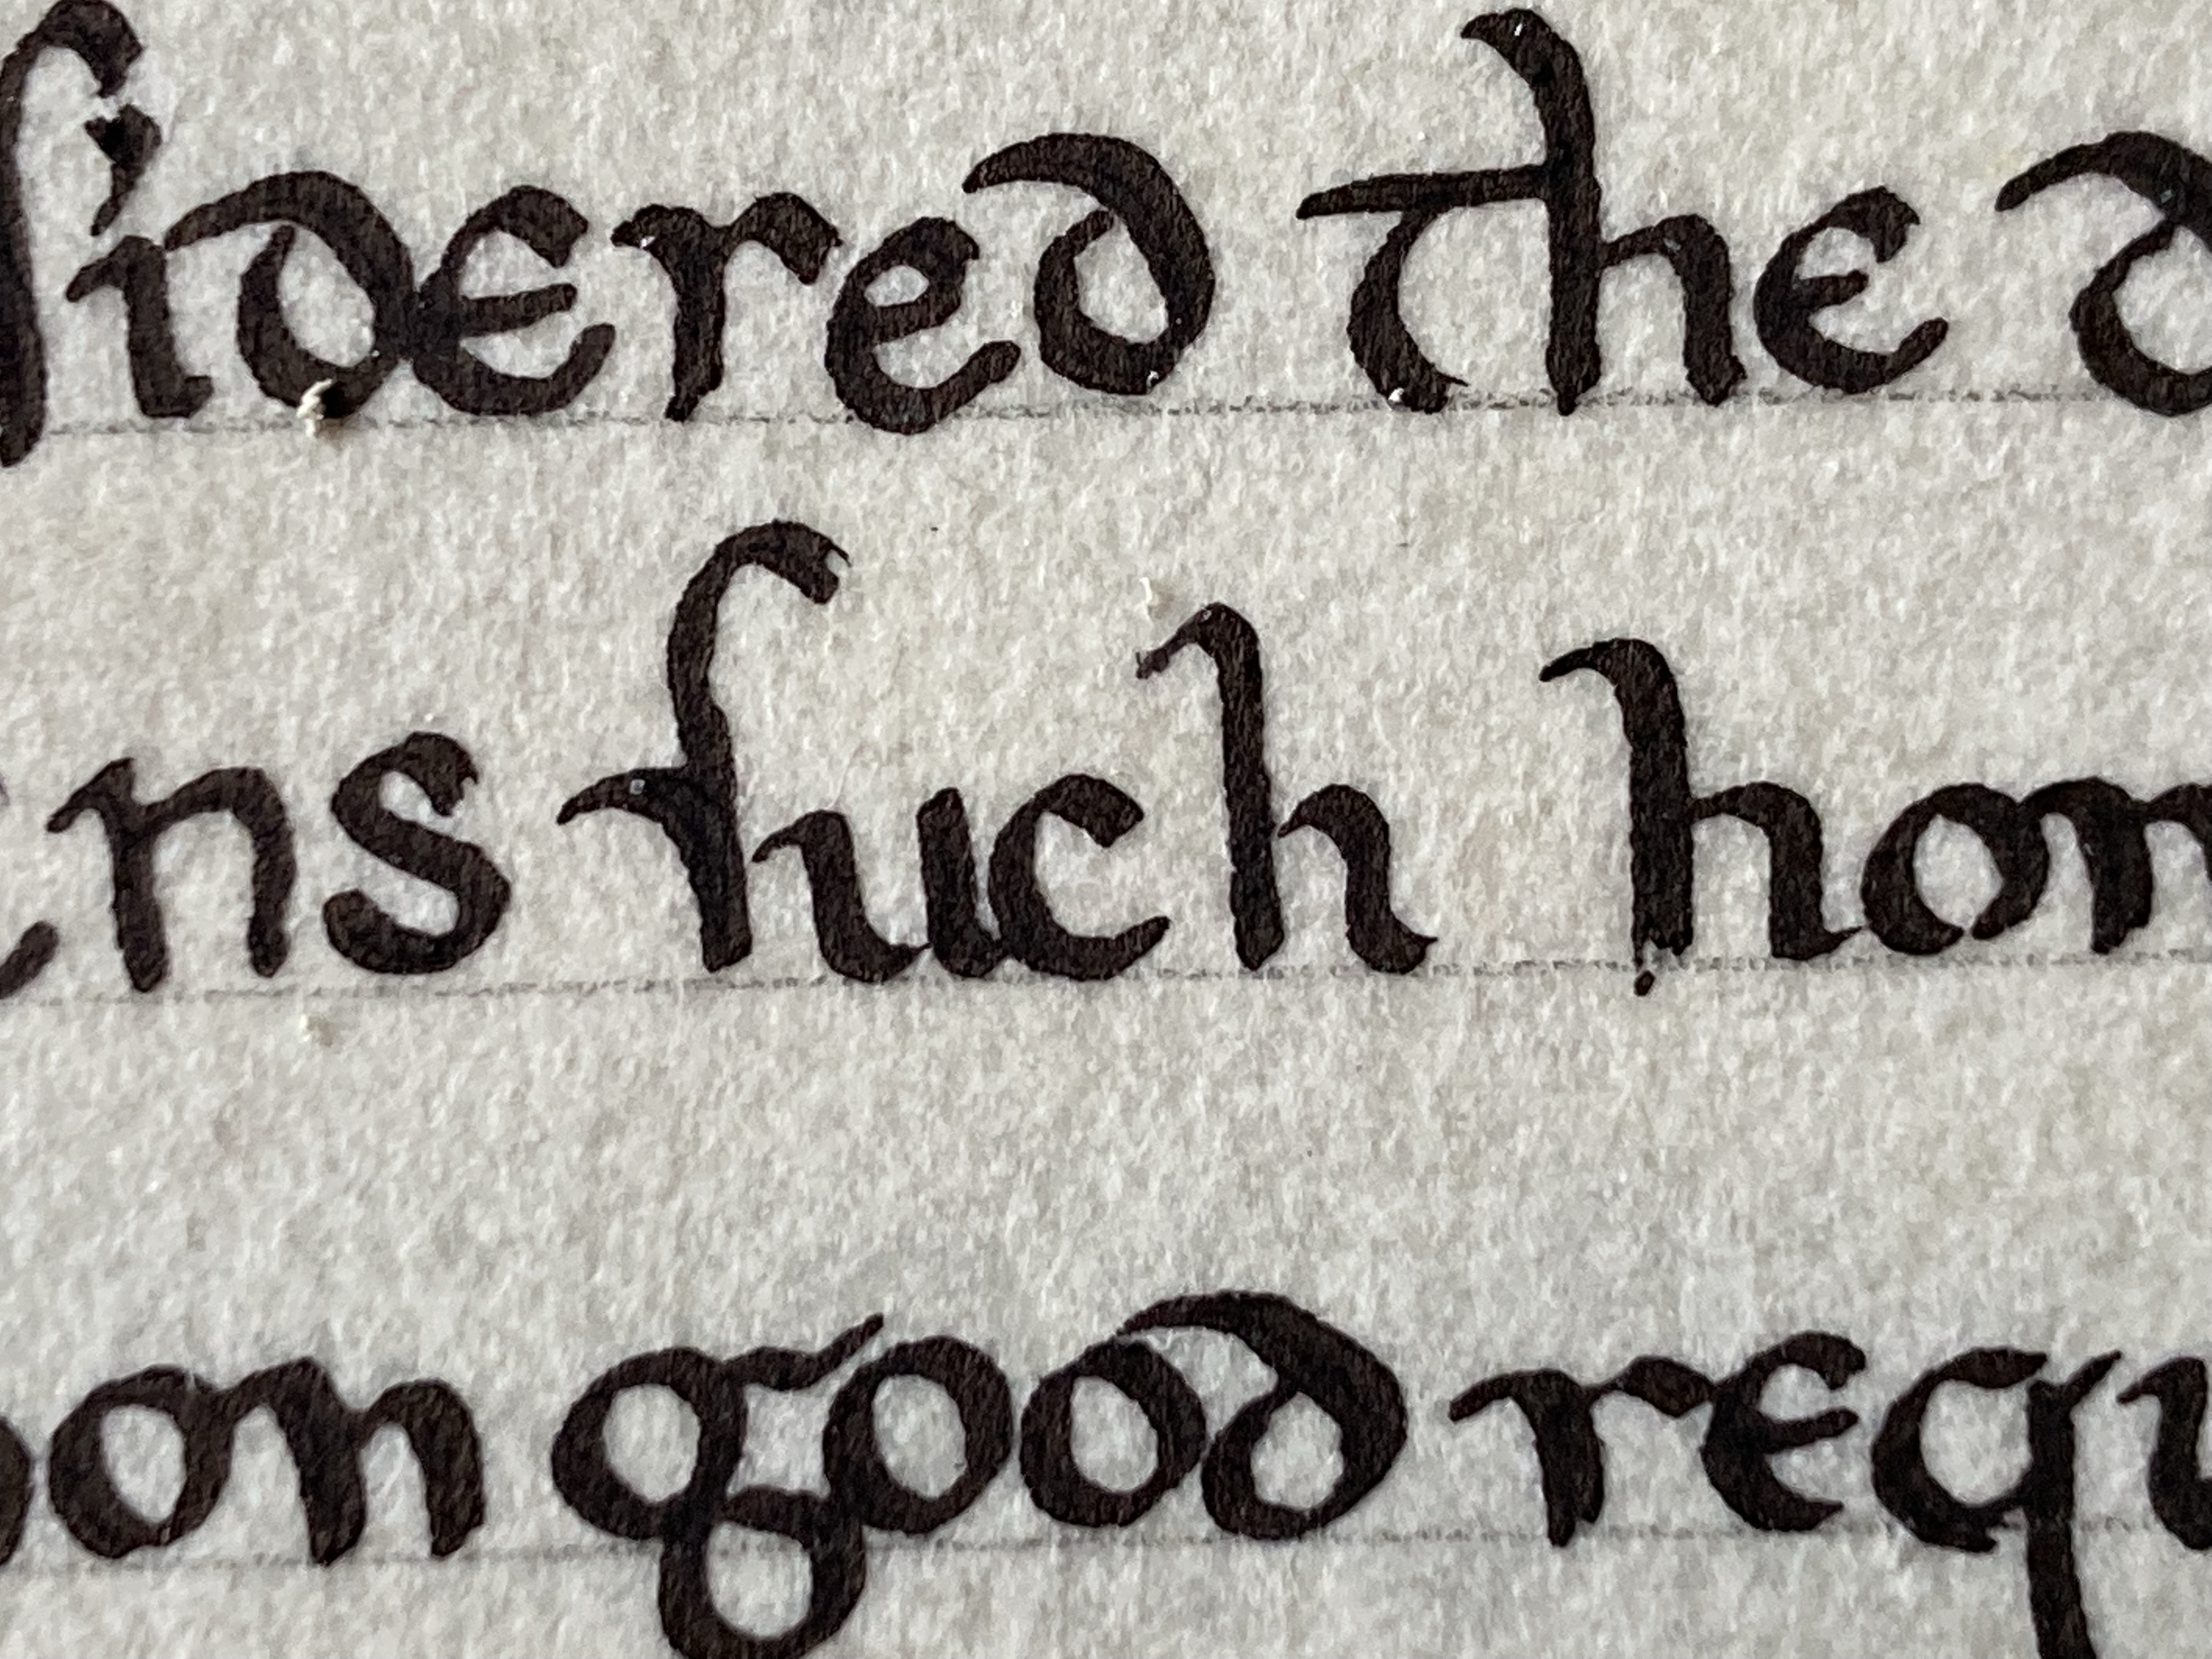 ſidered the d
ens ſuch hon
on good requ